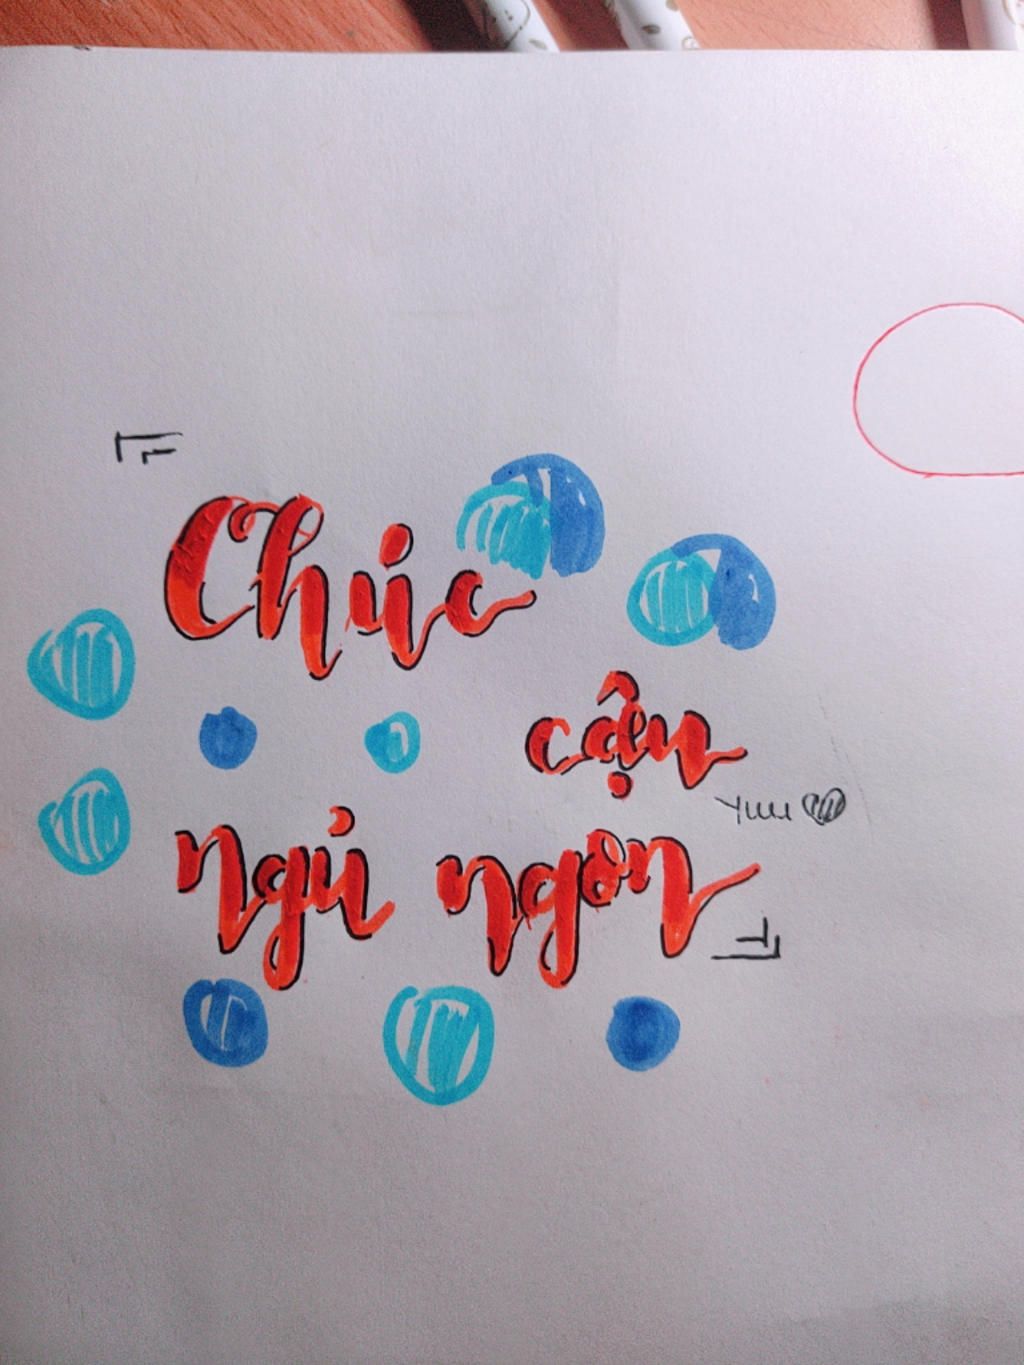 Chúc
cậu
Yuu
ngủ ngon